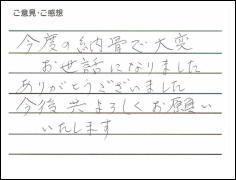 ご意見・ご感想
今度の納骨で大変
お世話になりました
ありがとうございました
今後共よろしくお願い
いたします